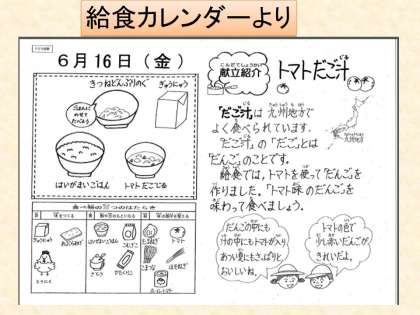 給食カレンダーより
6月16日（金）
きつねどんぶりのぐ
ぎゅうにゅう
ごはんに
のせて
たべよう
はいがまいごはん
トマトだごじる
こんだてしょうかい
献立紹介
トマトだご汁
「だご汁」は九州地方で
よく食べられています。
「だご汁」の「だご」とは
「だんご」のことです。
給食では，トマトを使って「だんご」を
作りました。「トマト味のだんご」を
味わって食べましょう。
九州地方
だんごの中にも
汁の中にもトマトが入り，
あつい夏にもさっぱりと
おいしいね。
トマトの色で
少し赤いだんごが，
きれいだよ。
ぎゅうにゅう
はいがまいごはん
さとう
トマト